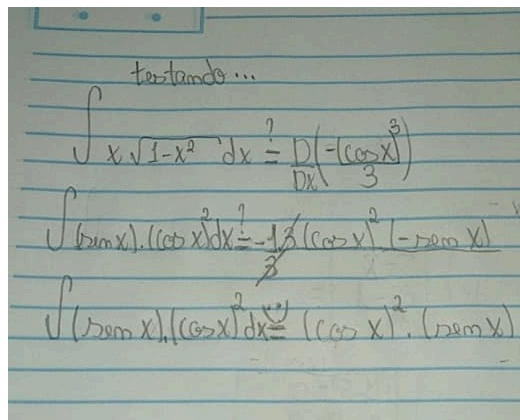 testando...
∫ x √(1-x²) dx ≟ D/Dx (-(cos x)³/3)
∫ (sen x).(cos x)² dx ≟ -1.3/3 (cos x)² (-sen x)
∫ (sen x).(cos x)² dx = (cos x)² . (sen x)